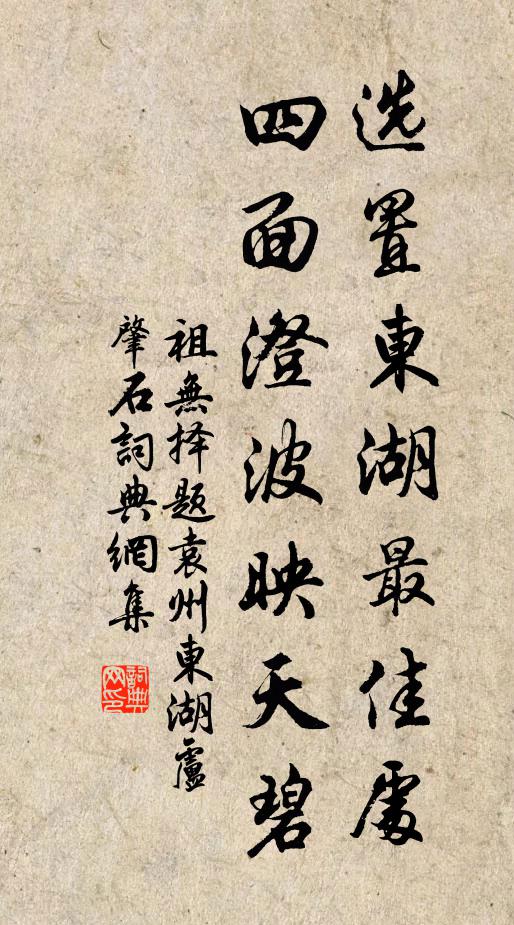 选置東湖最佳處
四面澄波映天碧
祖無择题袁州東湖盧
肇石詞典網集
詞典
网印